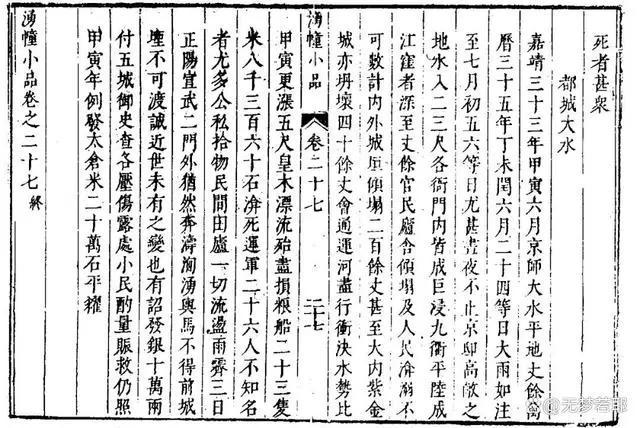 死者甚衆
都城大水
嘉靖三十三年甲寅六月京師大水平地丈餘萬
曆三十五年丁未閏六月二十四等日大雨如注
至七月初五六等日尤甚晝夜不止京邸高敞之
地水入二三尺各衙門內皆成巨浸九衢平陸成
江窪者深至丈餘官民廬舍傾塌及人民渰溺不
可數計內外城垣傾塌二百餘丈甚至大內紫金
城亦坍壞四十餘丈會通運河盡行衝決水勢比
湧幢小品 卷二十七 二十七
甲寅更漲五尺皇木漂流殆盡損粮船二十三隻
米八千三百六十石渰死運軍二十六人不知名
者尤多公私拾物民間田廬一切流蕩雨霽三日
正陽宣武二門外猶然奔濤洶湧輿馬不得前城
堙不可渡誠近世未有之變也有詔發銀十萬兩
付五城御史查各壓傷露處小民酌量賑救仍照
甲寅年例發太倉米二十萬石平糶
湧幢小品卷之二十七 終
@无梦若耶